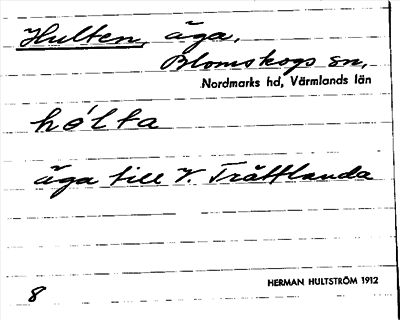 Hulten, äga,
Blomskogs sn,
Nordmarks hd, Värmlands län
hó̀lta
äga till V. Trättlanda
HERMAN HULTSTRÖM 1912
8